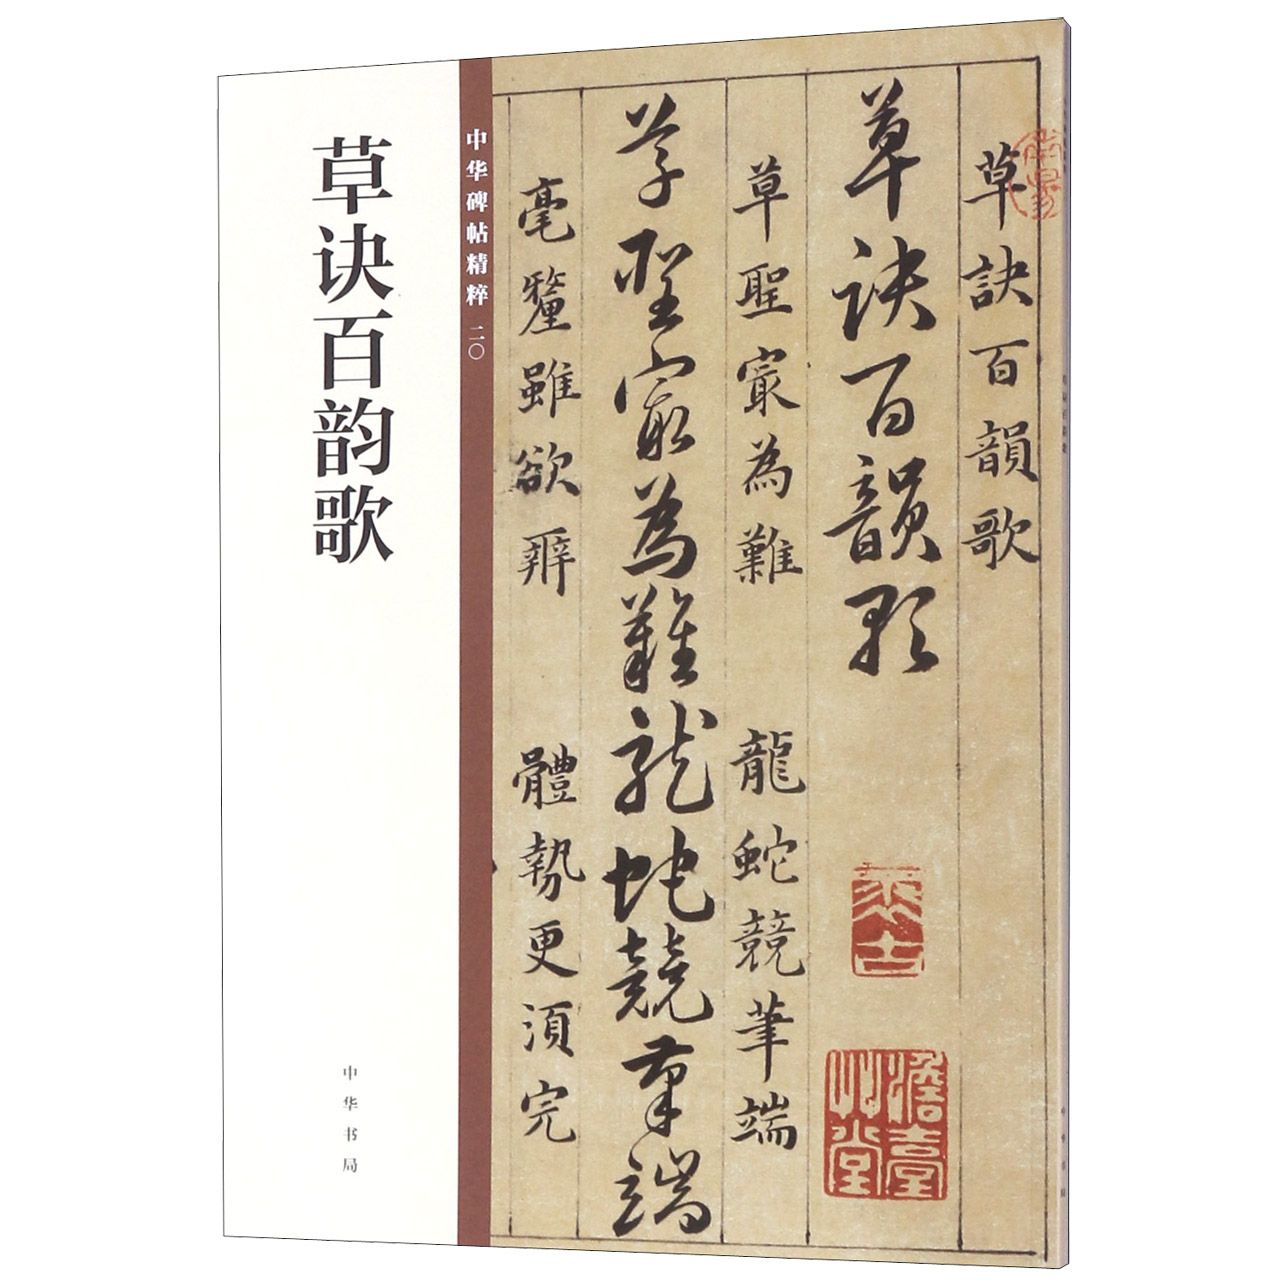 草诀百韵歌
中华书局
中华碑帖精粹 二〇
草訣百韻歌
草訣百韻歌
草聖冣為難 龍蛇競筆端
草聖冣為難龍蛇競筆端
毫釐雖欲辨 體勢更須完
澹臺
艸堂